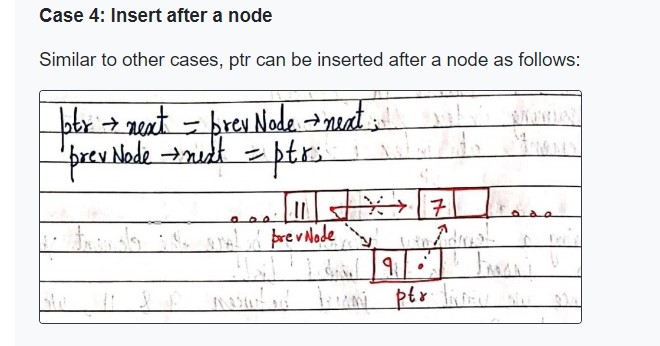 Case 4: Insert after a node
Similar to other cases, ptr can be inserted after a node as follows:
ptr → next = prevNode → next;
prevNode → next = ptr;
11
7
prevNode
9
ptr